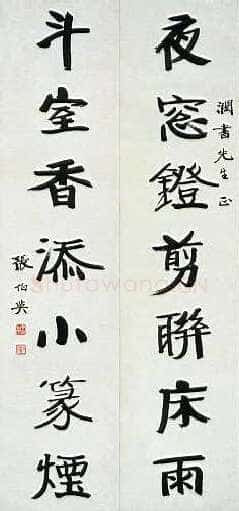 夜窓鐙剪聯床雨
潤書先生正
斗室香添小篆煙
張伯英